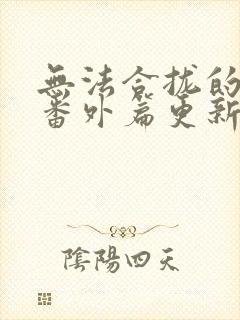 無法合拢的
番外篇更新
陰陽四天